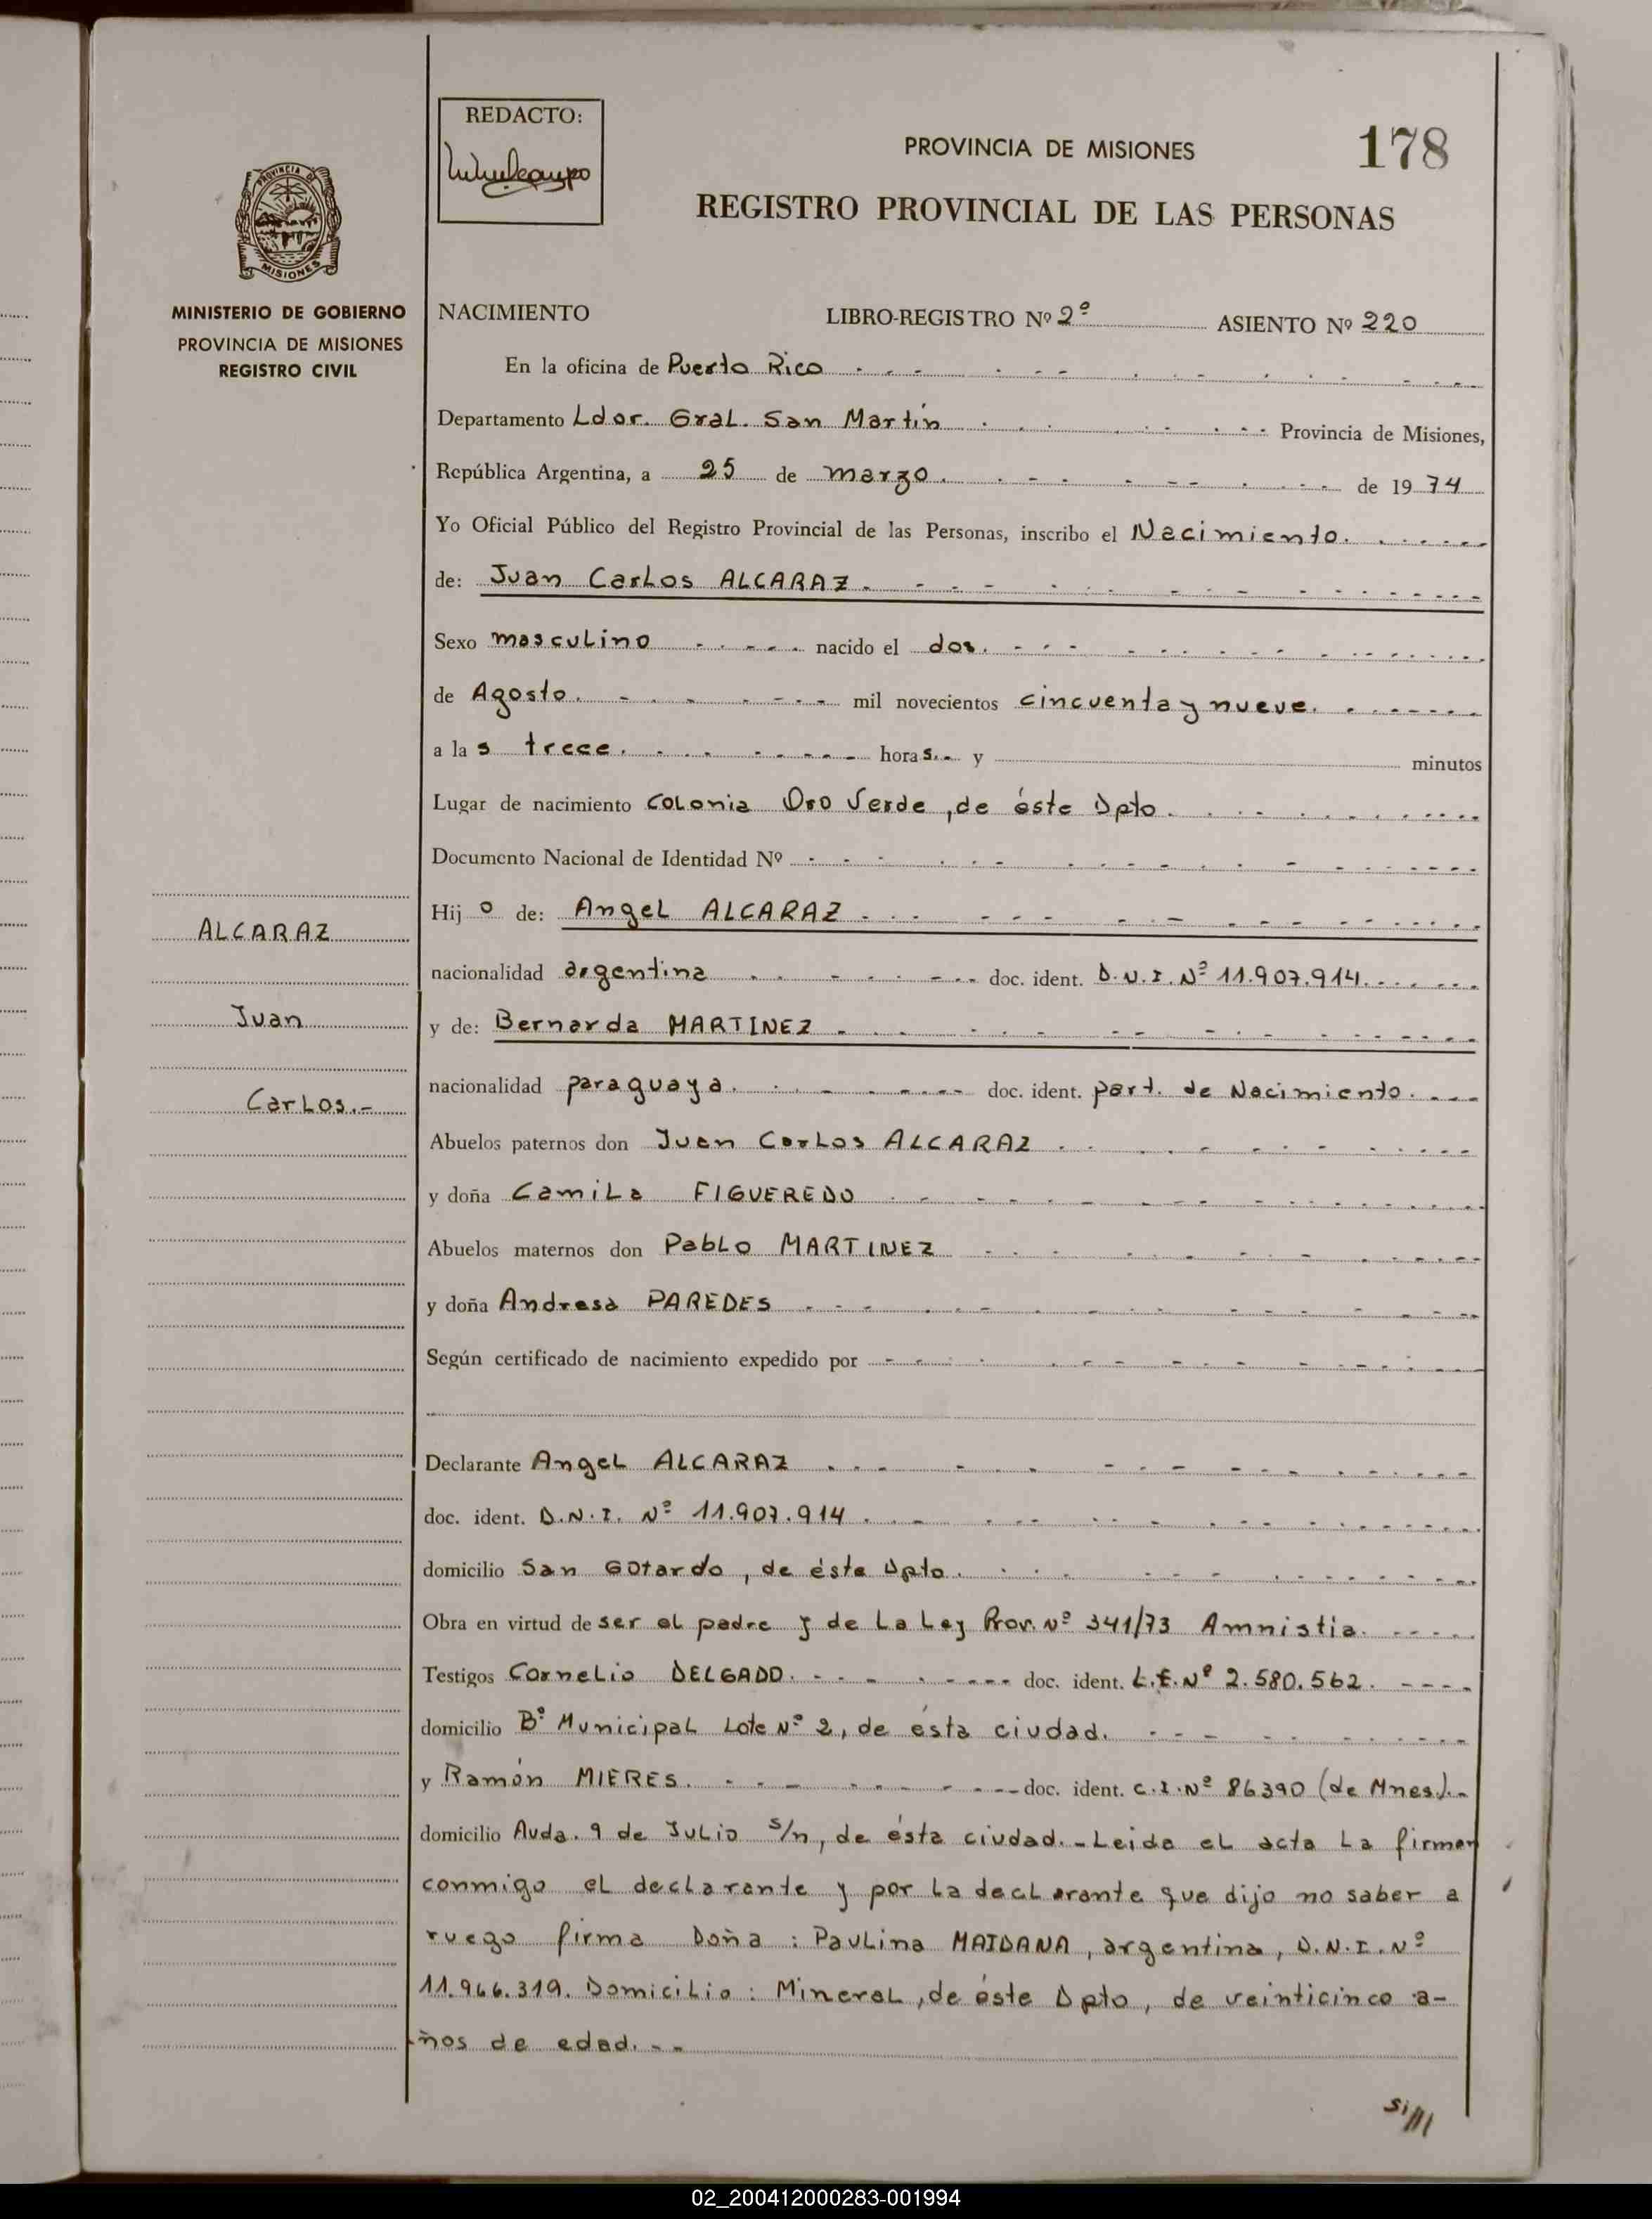 REDACTO:
PROVINCIA DE MISIONES
178
REGISTRO PROVINCIAL DE LAS PERSONAS
PROVINCIA DE
MISIONES
MINISTERIO DE GOBIERNO
PROVINCIA DE MISIONES
REGISTRO CIVIL
NACIMIENTO LIBRO-REGISTRO Nº 2º ASIENTO Nº 220
En la oficina de Puerto Rico
Departamento Ldor. Gral. San Martín Provincia de Misiones,
República Argentina, a 25 de marzo. de 1974
Yo Oficial Público del Registro Provincial de las Personas, inscribo el Nacimiento.
de: Juan Carlos ALCARAZ.
Sexo masculino nacido el dos.
de Agosto. mil novecientos cincuenta y nueve.
a las trece. horas. y minutos
Lugar de nacimiento Colonia Oro Verde, de éste Dpto.
Documento Nacional de Identidad Nº
Hijo de: Angel ALCARAZ.
nacionalidad argentina doc. ident. D.N.I. Nº 11.907.914.
y de: Bernarda MARTINEZ.
nacionalidad paraguaya. doc. ident. part. de Nacimiento.
Abuelos paternos don Juan Carlos ALCARAZ
y doña Camila FIGUEREDO
Abuelos maternos don Pablo MARTINEZ
y doña Andresa PAREDES
Según certificado de nacimiento expedido por
Declarante Angel ALCARAZ
doc. ident. D.N.I. Nº 11.907.914.
domicilio San Gotardo, de éste Dpto.
Obra en virtud de ser el padre y de La Ley Prov. Nº 341/73 Amnistia.
Testigos Cornelio DELGADO. doc. ident. L.E. Nº 2.580.562.
domicilio Bº Municipal Lote Nº 2, de ésta ciudad.
y Ramón MIERES. doc. ident. C.I. Nº 86390 (de Mnes).-
domicilio Avda. 9 de Julio s/n, de ésta ciudad.-Leida el acta La firman
conmigo el declarante y por la declarante que dijo no saber a
ruego firma Doña: Paulina MAIDANA, argentina, D.N.I. Nº
11.966.319. Domicilio: Mineral, de éste Dpto, de veinticinco a-
ños de edad.--
ALCARAZ
Juan
Carlos.-
02_200412000283-001994